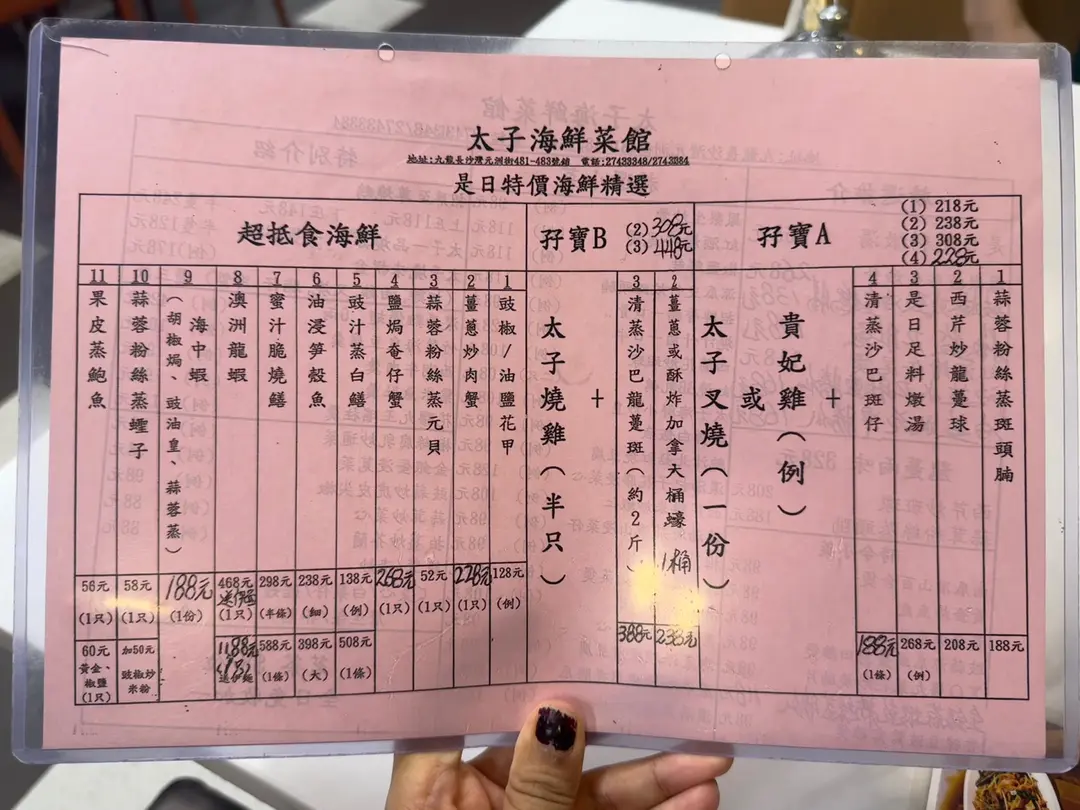 太子海鮮菜館
地址:九龍長沙灣元洲街481-483號鋪 電話:27433348/2743384
是日特價海鮮精選
孖寶A
(1) 218元
(2) 238元
(3) 308元
(4) 228元
1
蒜蓉粉絲蒸斑頭腩
188元
2
西芹炒龍躉球
208元
3
是日足料燉湯
268元
(例)
4
清蒸沙巴斑仔
188元
(1條)
+
貴妃雞(例)
或
太子叉燒(一份)
孖寶B
(2) 308元
(3) 448元
2
薑蔥或酥炸加拿大桶蠔 1桶
238元
3
清蒸沙巴龍躉斑(約2斤)
388元
+
太子燒雞(半只)
超抵食海鮮
1
豉椒/油鹽花甲
128元
(例)
2
薑蔥炒肉蟹
228元
(1只)
3
蒜蓉粉絲蒸元貝
52元
(1只)
4
鹽焗奄仔蟹
268元
(1只)
5
豉汁蒸白鱔
138元
(例)
508元
(1條)
6
油浸笋殼魚
238元
(細)
398元
(大)
7
蜜汁脆燒鱔
298元
(半條)
588元
(1條)
8
澳洲龍蝦
468元
(1只)
1188元
9
海中蝦
(胡椒焗、豉油皇、蒜蓉蒸)
188元
(1份)
10
蒜蓉粉絲蒸蟶子
58元
(1只)
加50元
豉椒炒
米粉
11
果皮蒸鮑魚
56元
(1只)
60元
黃金、
椒鹽
(1只)